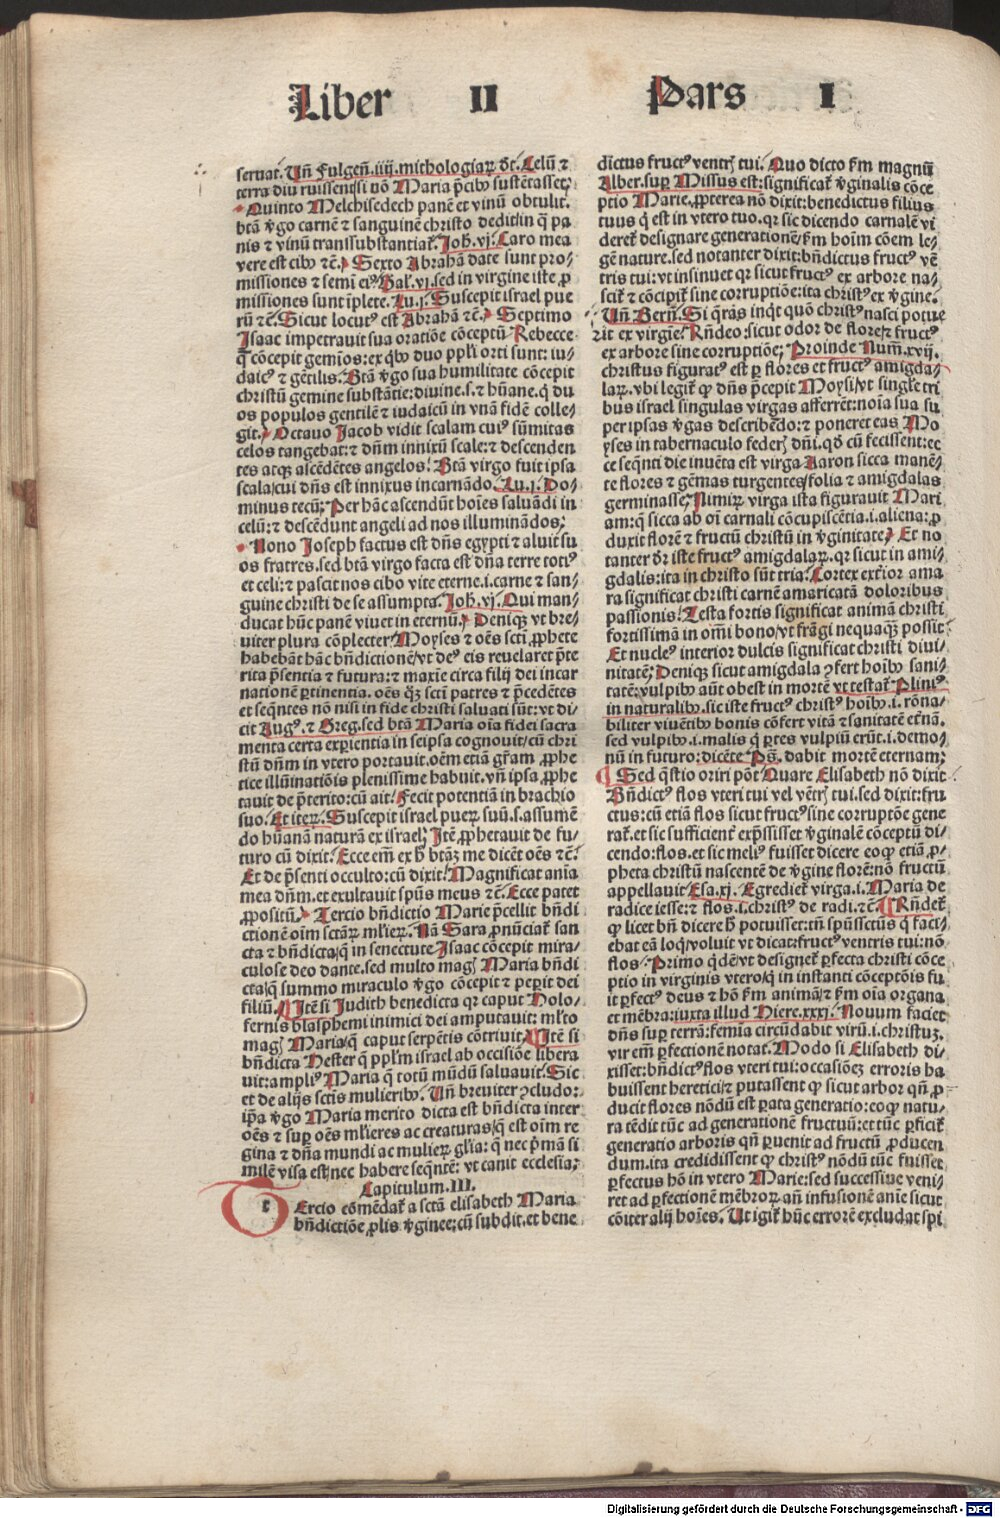 Liber II Pars I
seruat᷑. Uñ Fulgeñ.iiij.mithologiaꝝ d̄t. Celū ⁊
terra diu ruissent/si nō Maria p̄cibꝰ sustētasset;
Quinto Melchisedech panē et vinū obtulit.
btā v̄go carnē ⁊ sanguinē christo dedit/in q̄ pa
nis ⁊ vinū transsubstantiat᷑. Joh̄.vj. Caro mea
vere est cibꝰ ⁊c̄. Sexto Abrahā date sunt pro⸗
missiones ⁊ semī eiꝰ. Gal̄.vj. sed in virgine iste ꝓ
missiones sunt īplete. Lu.j. Suscepit israel pue
rū ⁊c̄. Sicut locutꝰ est Abrahā ⁊c̄. Septimo
Isaac impetrauit sua oratiōe cōceptū Rebecce
q̄ cōcepit gemīos: ex q̇bꝰ duo pp̄li orti sunt: iu⸗
daicꝰ ⁊ gētilis. Btā v̄go sua humilitate cōcepit
christū gemine substātie: diuine.s.⁊ hūane. q̇ du
os populos gentilē ⁊ iudaicū in vnā fidē colle⸗
git. Octauo Jacob vidit scalam cuiꝰ sūmitas
celos tangebat: ⁊ dn̄m innixū scale: ⁊ descenden
tes atqꝫ ascēdētes angelos. Btā virgo fuit ipsa
scala/cui dn̄s est innixus incarnādo. Lu.j. Do⸗
minus tecū; Per hāc ascendūt hoīes saluādi in
celū: ⁊ descēdunt angeli ad nos illuminādos;
Nono Joseph factus est dn̄s egypti ⁊ aluit su
os fratres. sed btā virgo facta est dn̄a terre totiꝰ
et celi: ⁊ pascit nos cibo vite eterne.i.carne ⁊ san⸗
guine christi de se assumpta. Joh̄.vj. Qui man⸗
ducat hūc panē viuet in eternū. Deniqꝫ vt bre⸗
uiter plura cōplecter. Moyses ⁊ oēs sctī ꝓphete
habebāt hāc bn̄dictionē/vt deꝰ eis reuelaret p̄te
rita p̄sentia ⁊ futura: ⁊ maxīe circa filij dei incar
nationē ꝑtinentia. oēs q̇ꝫ sctī patres ⁊ p̄cedētes
et seq̄ntes nō nisi in fide christi saluati sūt: vt di⸗
cit Augꝰ. ⁊ Greg. sed btā Maria oīa fidei sacra
menta certa expiēntia in seipsa cognouit/cū chri
stū dn̄m in vtero portauit. oēm etiā gr̄am ꝓphe
tice illūinatiōis plenissime habuit. vn̄ ipsa ꝓphe
tauit de p̄terito: cū ait. Fecit potentiā in brachio
suo. Et iteꝝ. Suscepit israel pueꝝ suū.s.assumē
do hūanā naturā ex israel; Jtē ꝓphetauit de fu⸗
turo cū dixit. Ecce em̄ ex h̄ btāꝫ me dicēt oēs ⁊c̄.
Et de p̄senti occulto: cū dixit. Magnificat anīa
mea dn̄m. et exultauit spūs meus ⁊c̄. Ecce patet
ꝓpositū. Tercio bn̄dictio Marie p̄cellit bn̄di
ctionē oīm sctāꝝ ml̄ieꝝ. Nā Sara ꝓnūciat᷑ san
cta ⁊ bn̄dicta/q̄ in senectute Isaac cōcepit mira⸗
culose deo dante. sed multo magꝭ Maria bn̄di
cta/q̄ summo miraculo v̄go cōcepit ⁊ pepit dei
filiū. Jtē si Judith benedicta qꝛ caput Holo⸗
fernis blasphemi inimici dei amputauit: ml̄to
magꝭ Maria/q̄ caput serpētis cōtriuit. Jtē si
bn̄dicta Hester q̄ pp̄lm israel ab occisiōe libera
uit: ampliꝰ Maria q̄ totū mūdū saluauit. Sic
et de alijs sctīs mulieribꝰ. Uñ breuiter ꝯcludo:
ip̄a v̄go Maria merito dicta est bn̄dicta inter
oēs ⁊ suꝑ oēs ml̄ieres ac creaturas/q̄ est oīm re
gina ⁊ dn̄a mundi ac mulieꝝ gl̄ia: q̄ nec p̄mā si
milē visa est/nec habere seq̄ntē: vt canit ecclesia;
Capitulum.III.
Tercio cōmēdat᷑ a sctā elisabeth Maria
bn̄dictiōe ꝓlis v̄ginee; cū subdit. et bene
dictus fructꝰ ventrꝭ tui. Quo dicto ẜm magnū
Alber. suꝑ Missus est: significat᷑ v̄ginalis cōce
ptio Marie. ꝓpterea nō dixit: benedictus filius
tuus q̇ est in vtero tuo. qꝛ sic dicendo carnalē vi
deret᷑ designare generationē/ẜm hoīm cōem le⸗
gē nature. sed notanter dixit: bn̄dictus fructꝰ vē
tris tui: vt insinuet qꝛ sicut fructꝰ ex arbore na⸗
scit᷑ ⁊ cōcipit᷑ sine corruptiōe: ita christꝰ ex v̄gine.
Uñ Berñ. Si q̄ras inq̇t quō christꝰ nasci potue
rit ex virgīe. Rn̄deo: sicut odor de flore/⁊ fructꝰ
ex arbore sine corruptiōe; Proinde Num̄.xvij.
christus figuratꝰ est ꝑ flores et fructꝰ amigda⸗
laꝝ. vbi legit᷑ ꝙ dn̄s p̄cepit Moysi/vt singl̄e tri
bus israel singulas virgas afferrēt: noīa sua su
per ipsas v̄gas describēdo: ⁊ poneret eas Mo
yses in tabernaculo federꝭ dn̄i. qd̄ cū fecissent: ec
ce seq̄nti die inuēta est virga Aaron sicca manē⸗
te flores ⁊ gēmas turgentes/folia ⁊ amigdalas
germinasse; Nimiꝝ virga ista figurauit Mari
am: q̄ sicca ab oī carnali cōcupiscētia.i.aliena: ꝓ
duxit florē ⁊ fructū christū in v̄ginitate; Et no
tanter dr̄ iste fructꝰ amigdalaꝝ. qꝛ sicut in ami⸗
gdalis: ita in christo sūt tria. Cortex ext̄ior ama
ra significat christi carnē amaricatā doloribus
passionis. Testa fortis significat animā christi
fortissimā in om̄i bono/vt frāgi nequaꝗ̄ possit.
Et nucleꝰ interior dulcis significat christi diui⸗
nitatē; Deniqꝫ sicut amigdala ꝯfert hoībꝰ sani⸗
tatē: vulpibꝰ aūt obest in mortē vt testat᷑ Pliniꝰ
in naturalibꝰ. sic iste fructꝰ christꝰ hoībꝰ.i.rōna⸗
biliter viuētibꝰ bonis cōfert vitā ⁊ sanitatē et̄nā.
sed vulpibꝰ.i.malis q̇ ꝑtes vulpiū erūt.i.demo⸗
nū in futuro: dicēte Ps̄. dabit mortē eternam;
Sed q̄stio oriri pōt. Quare Elisabeth nō dixit
Bn̄dictꝰ flos vteri tui vel vētrꝭ tui. sed dixit: fru
ctus: cū etiā flos sicut fructꝰ sine corruptōe gene
rat᷑. et sic sufficient᷑ exp̄ssisset v̄ginalē cōceptū di⸗
cendo: flos. et sic meliꝰ fuisset dicere eo ꝙ etiā ꝓ⸗
pheta christū nascentē de v̄gine florē: nō fructū
appellauit Esa.xj. Egrediet᷑ virga.i. Maria de
radice iesse: ⁊ flos.i.christꝰ de radi. ⁊c̄. Rn̄det᷑
ꝙ licet bn̄ dicere h̄ potuisset: tn̄ spūssctūs q̇ faci⸗
ebat eā loq̇/voluit vt dicat: fructꝰ ventris tui: nō
flos. Primo q̇dē/vt designet᷑ ꝑfecta christi cōce
ptio in virginis vtero/q̇ in instanti cōceptōis fu
it ꝑfectꝰ deus ⁊ hō ẜm animā/⁊ ẜm oīa organa
et mēbra: iuxta illud Hiere.xxxj. Nouum faciet
dn̄s suꝑ terrā: femīa circūdabit virū.i.christuꝫ.
vir em̄ ꝑfectionē notat. Modo si Elisabeth di⸗
xisset: bn̄dictꝰ flos vteri tui: occasiōeꝫ erroris ha
buissent heretici/⁊ putassent ꝙ sicut arbor qn̄ ꝓ⸗
ducit flores nōdū est ꝑata generatio: eo ꝙ natu⸗
ra tēdit tūc ad generationē fructuū: et tūc ꝑficit᷑
generatio arboris qn̄ ꝑuenit ad fructū ꝓducen
dum. ita credidissent ꝙ christꝰ nōdū tūc fuisset
ꝑfectus hō in vtero Marie: sed successiue veni⸗
ret ad ꝑfectionē mēbroꝝ añ infusionē anīe sicut
cōiter alij hoīes. Ut igit᷑ hūc errorē excludat spi
Digitalisierung gefördert durch die Deutsche Forschungsgemeinschaft - DFG